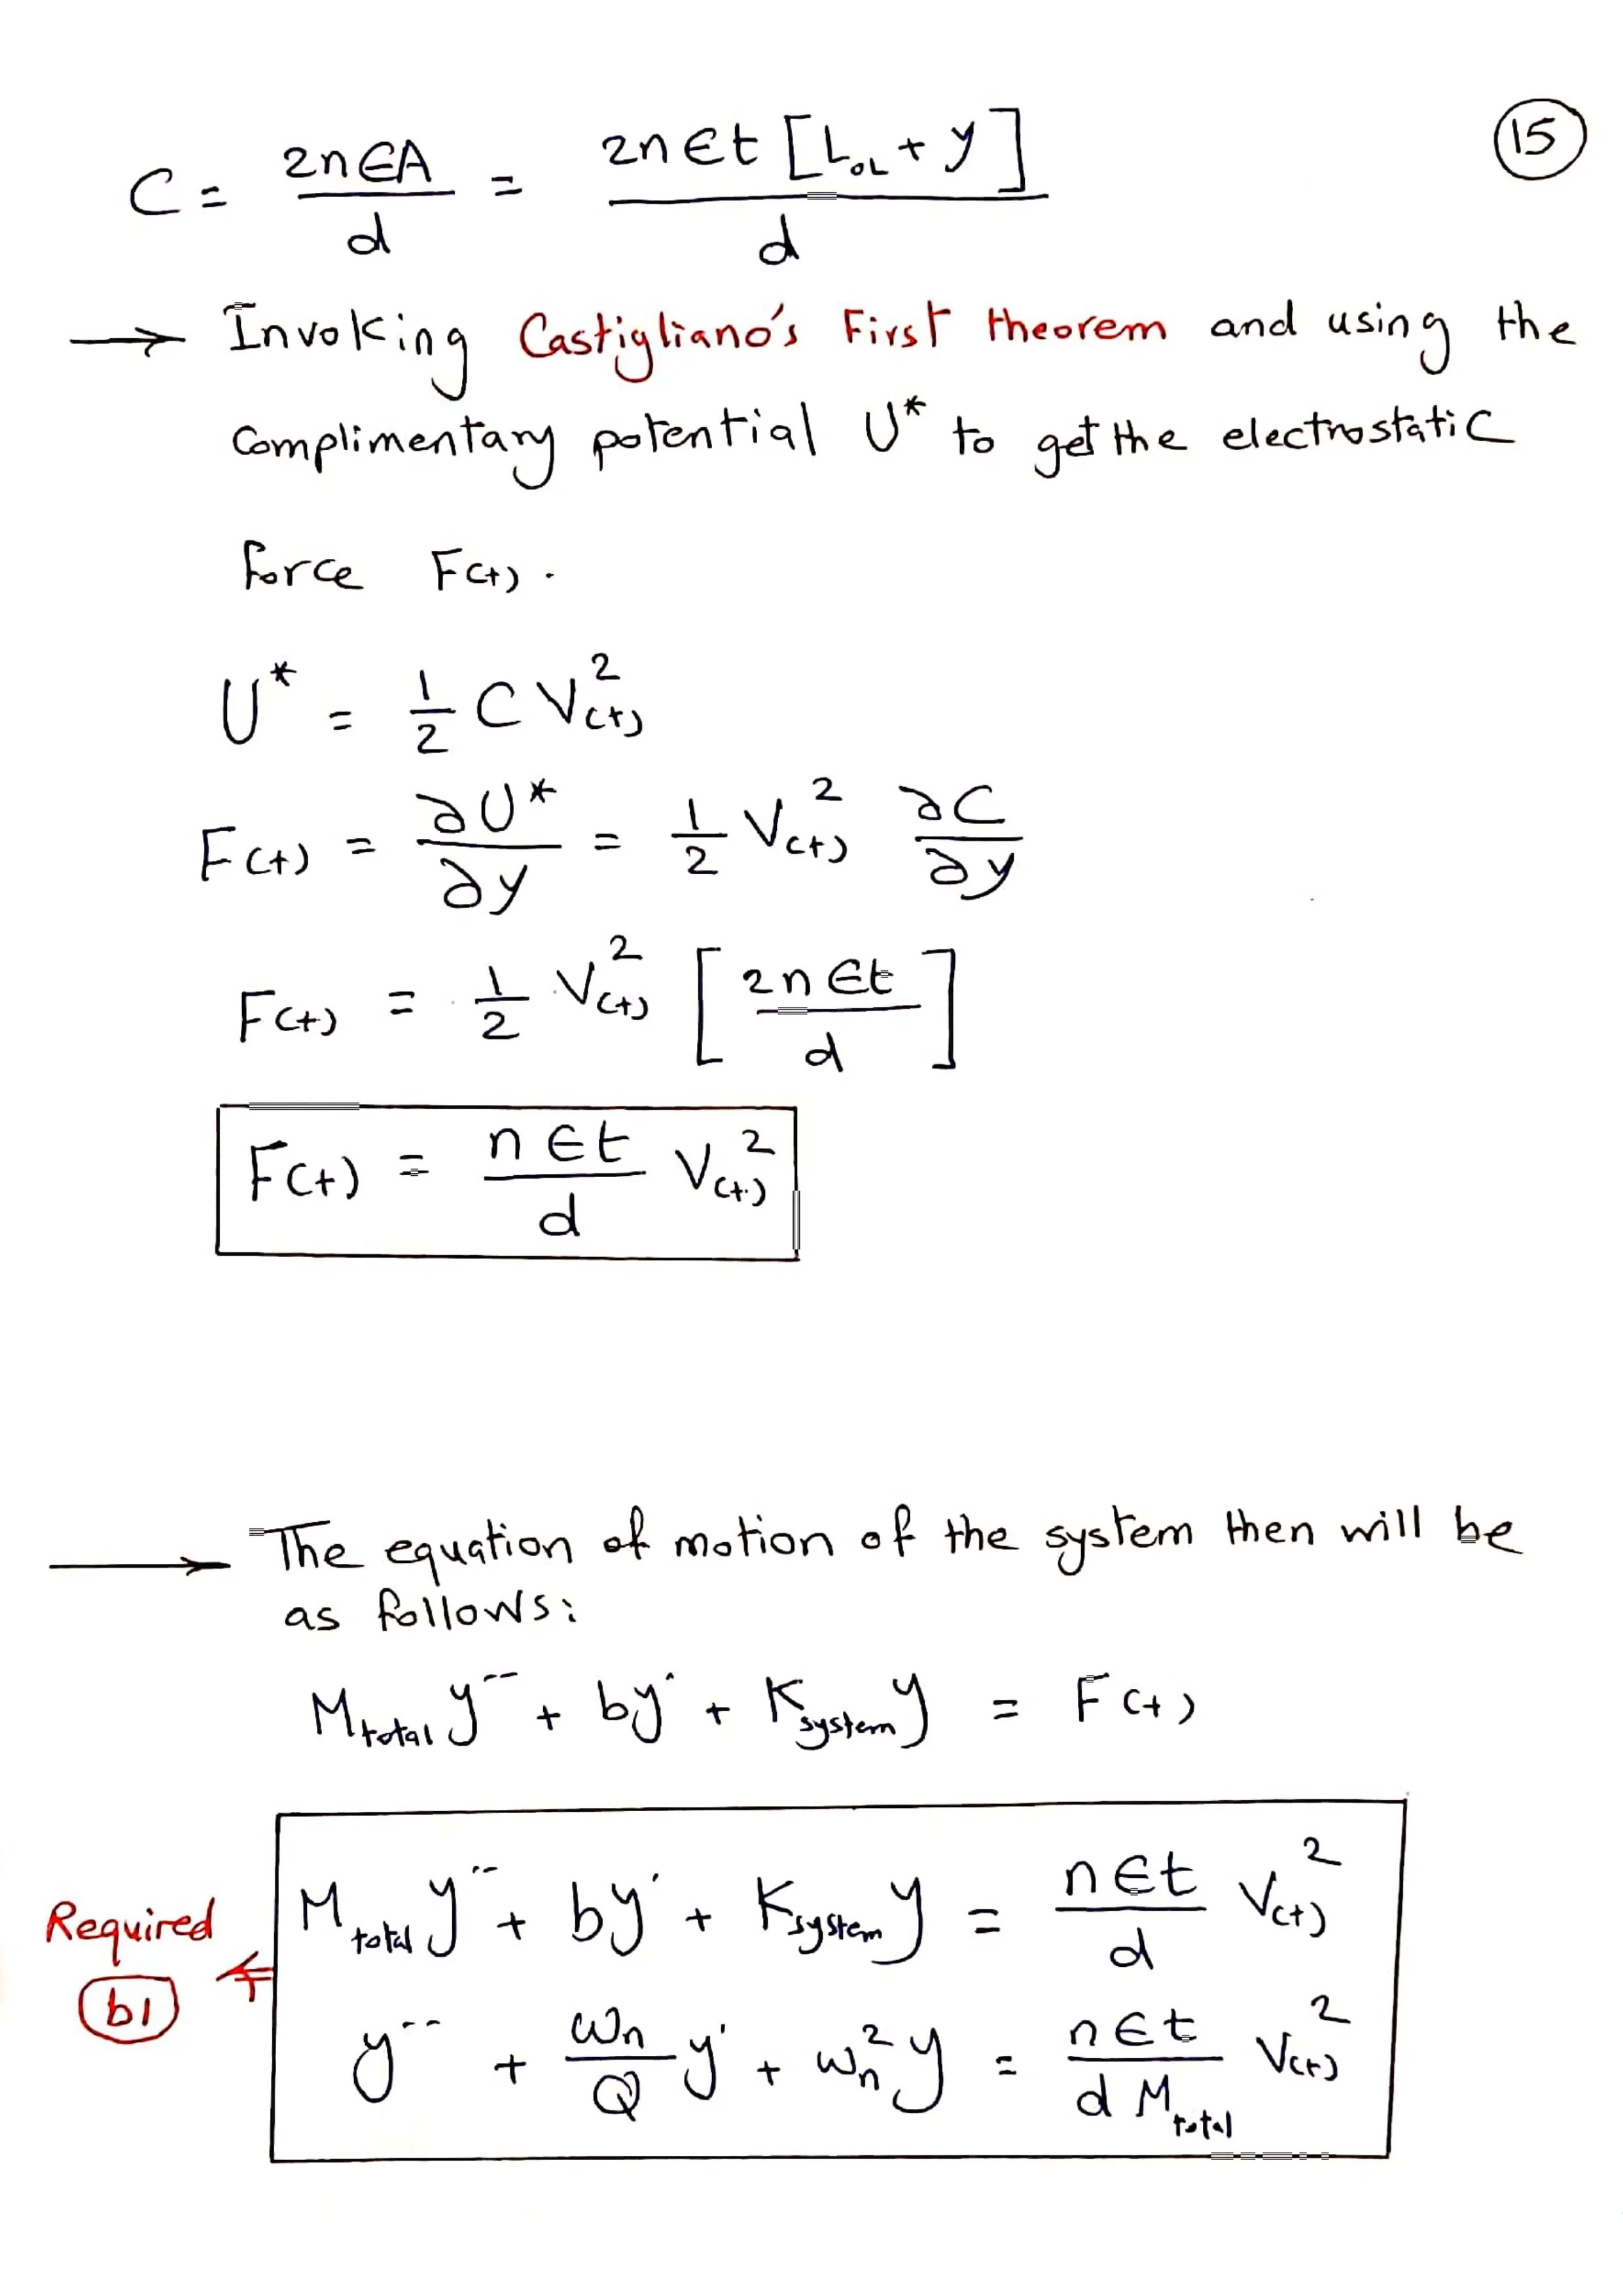 15
C = 2nϵA / d = 2nϵt [L_OL + y] / d
→ Invoking Castigliano's First theorem and using the
complimentary potential U* to get the electrostatic
force F(t).
U* = 1/2 C V(t)²
F(t) = ∂U* / ∂y = 1/2 V(t)² ∂C / ∂y
F(t) = 1/2 V(t)² [2nϵt / d]
F(t) = nϵt / d V(t)²
→ The equation of motion of the system then will be
as follows:
M_total ÿ + bẏ + K_system y = F(t)
M_total ÿ + bẏ + K_system y = nϵt / d V(t)²
Required
b1
ÿ + ωn / Q ẏ + ωn² y = nϵt / d M_total V(t)²